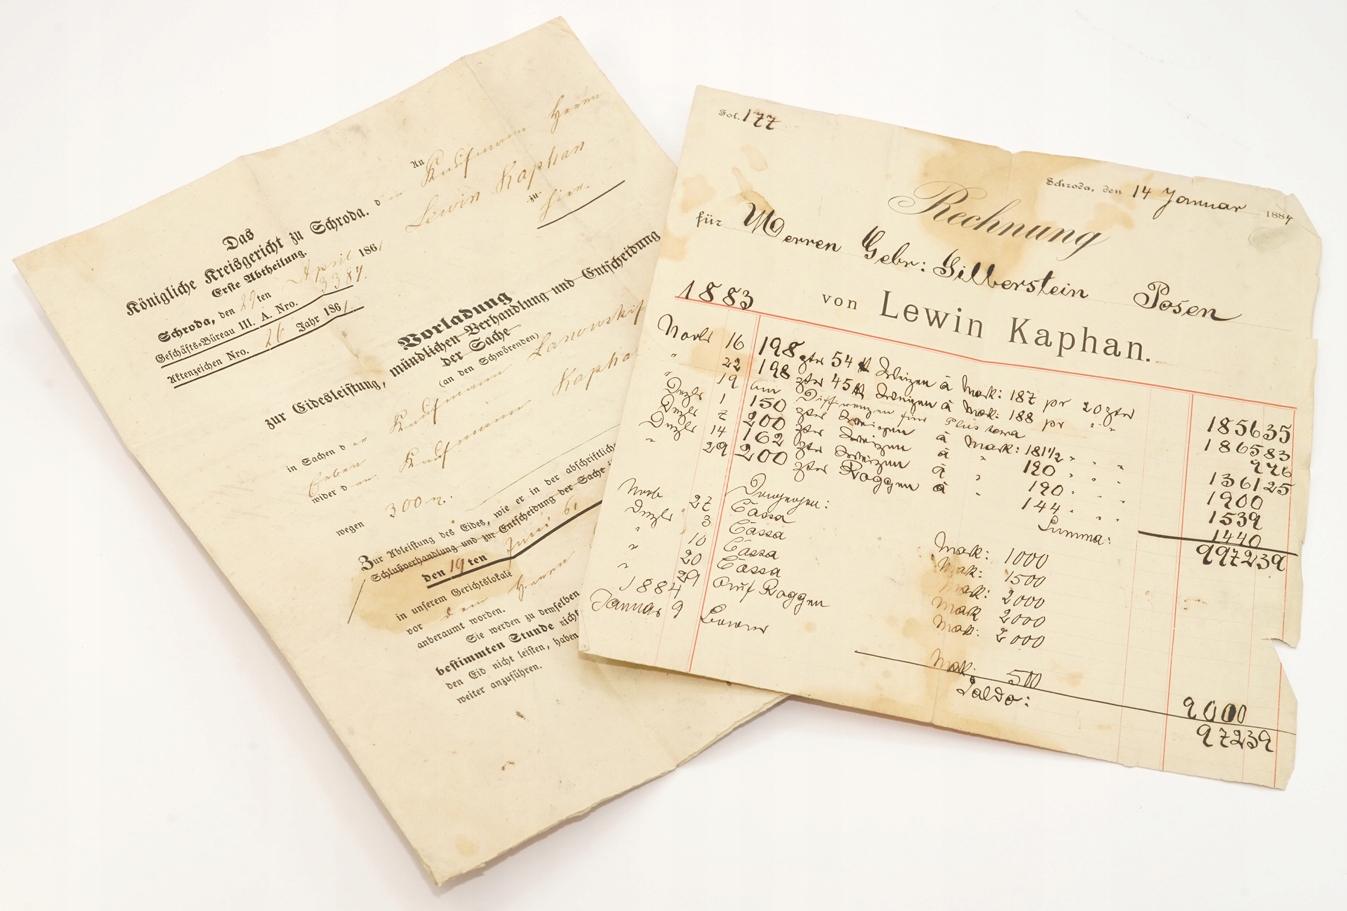 Das
Königliche Kreisgericht zu Schroda.
Erste Abtheilung.
Schroda, den 27 ten April 1861
Geschäfts-Büreau III. A. Nro. 3387.
Aktenzeichen Nro. 26 Jahr 1861
An
d Kaufmann Herrn
Lewin Kaphan
zu
hier.
Vorladung
zur Eidesleistung, mündlichen Verhandlung und Entscheidung
der Sache
(an den Schwörenden)
in Sachen d Kaufmann
wider d Kaufmann Kaphan
wegen 300
Zur Ableistung des Eides, wie er in der abschriftlich
Schlußverhandlung und zur Entscheidung der Sache
den 19 ten Juni 61
in unserem Gerichtslokale
vor dem Herrn
anberaumt worden.
Sie werden zu demselben
bestimmten Stunde nicht
den Eid nicht leisten, haben
weiter anzuführen.
Fol. 177
Schroda, den 14 Januar 1884
Rechnung
für Herren Gebr: Silberstein Posen
von Lewin Kaphan.
1883
Novbr 16 198 Ztr 54 ℔ Weizen à Mak: 187 pr 20 Ztr 185635
" 22 198 Ztr 45 ℔ Weizen à Mak: 188 pr " " 186583
" 19 an Differenzen für 976
Dezbr 1 150 Ztr Weizen à Mak: 181½ " " " 136125
Dezbr 7 200 Ztr Weizen à " 190 " " " 1900
Dezbr 14 162 Ztr Weizen à " 190 " " " 1539
" 29 200 Ztr Roggen à " 144 " " " 1440
Summa: 997239
Novb 27 Cassa Mak: 1000
Dezbr 3 Cassa Mak: 1500
" 10 Cassa Mak: 2000
" 20 Cassa Mak 2000
" 29 Auf Roggen Mak: 2000
1884
Januar 9 Mak: 500
9000
Saldo: 97239